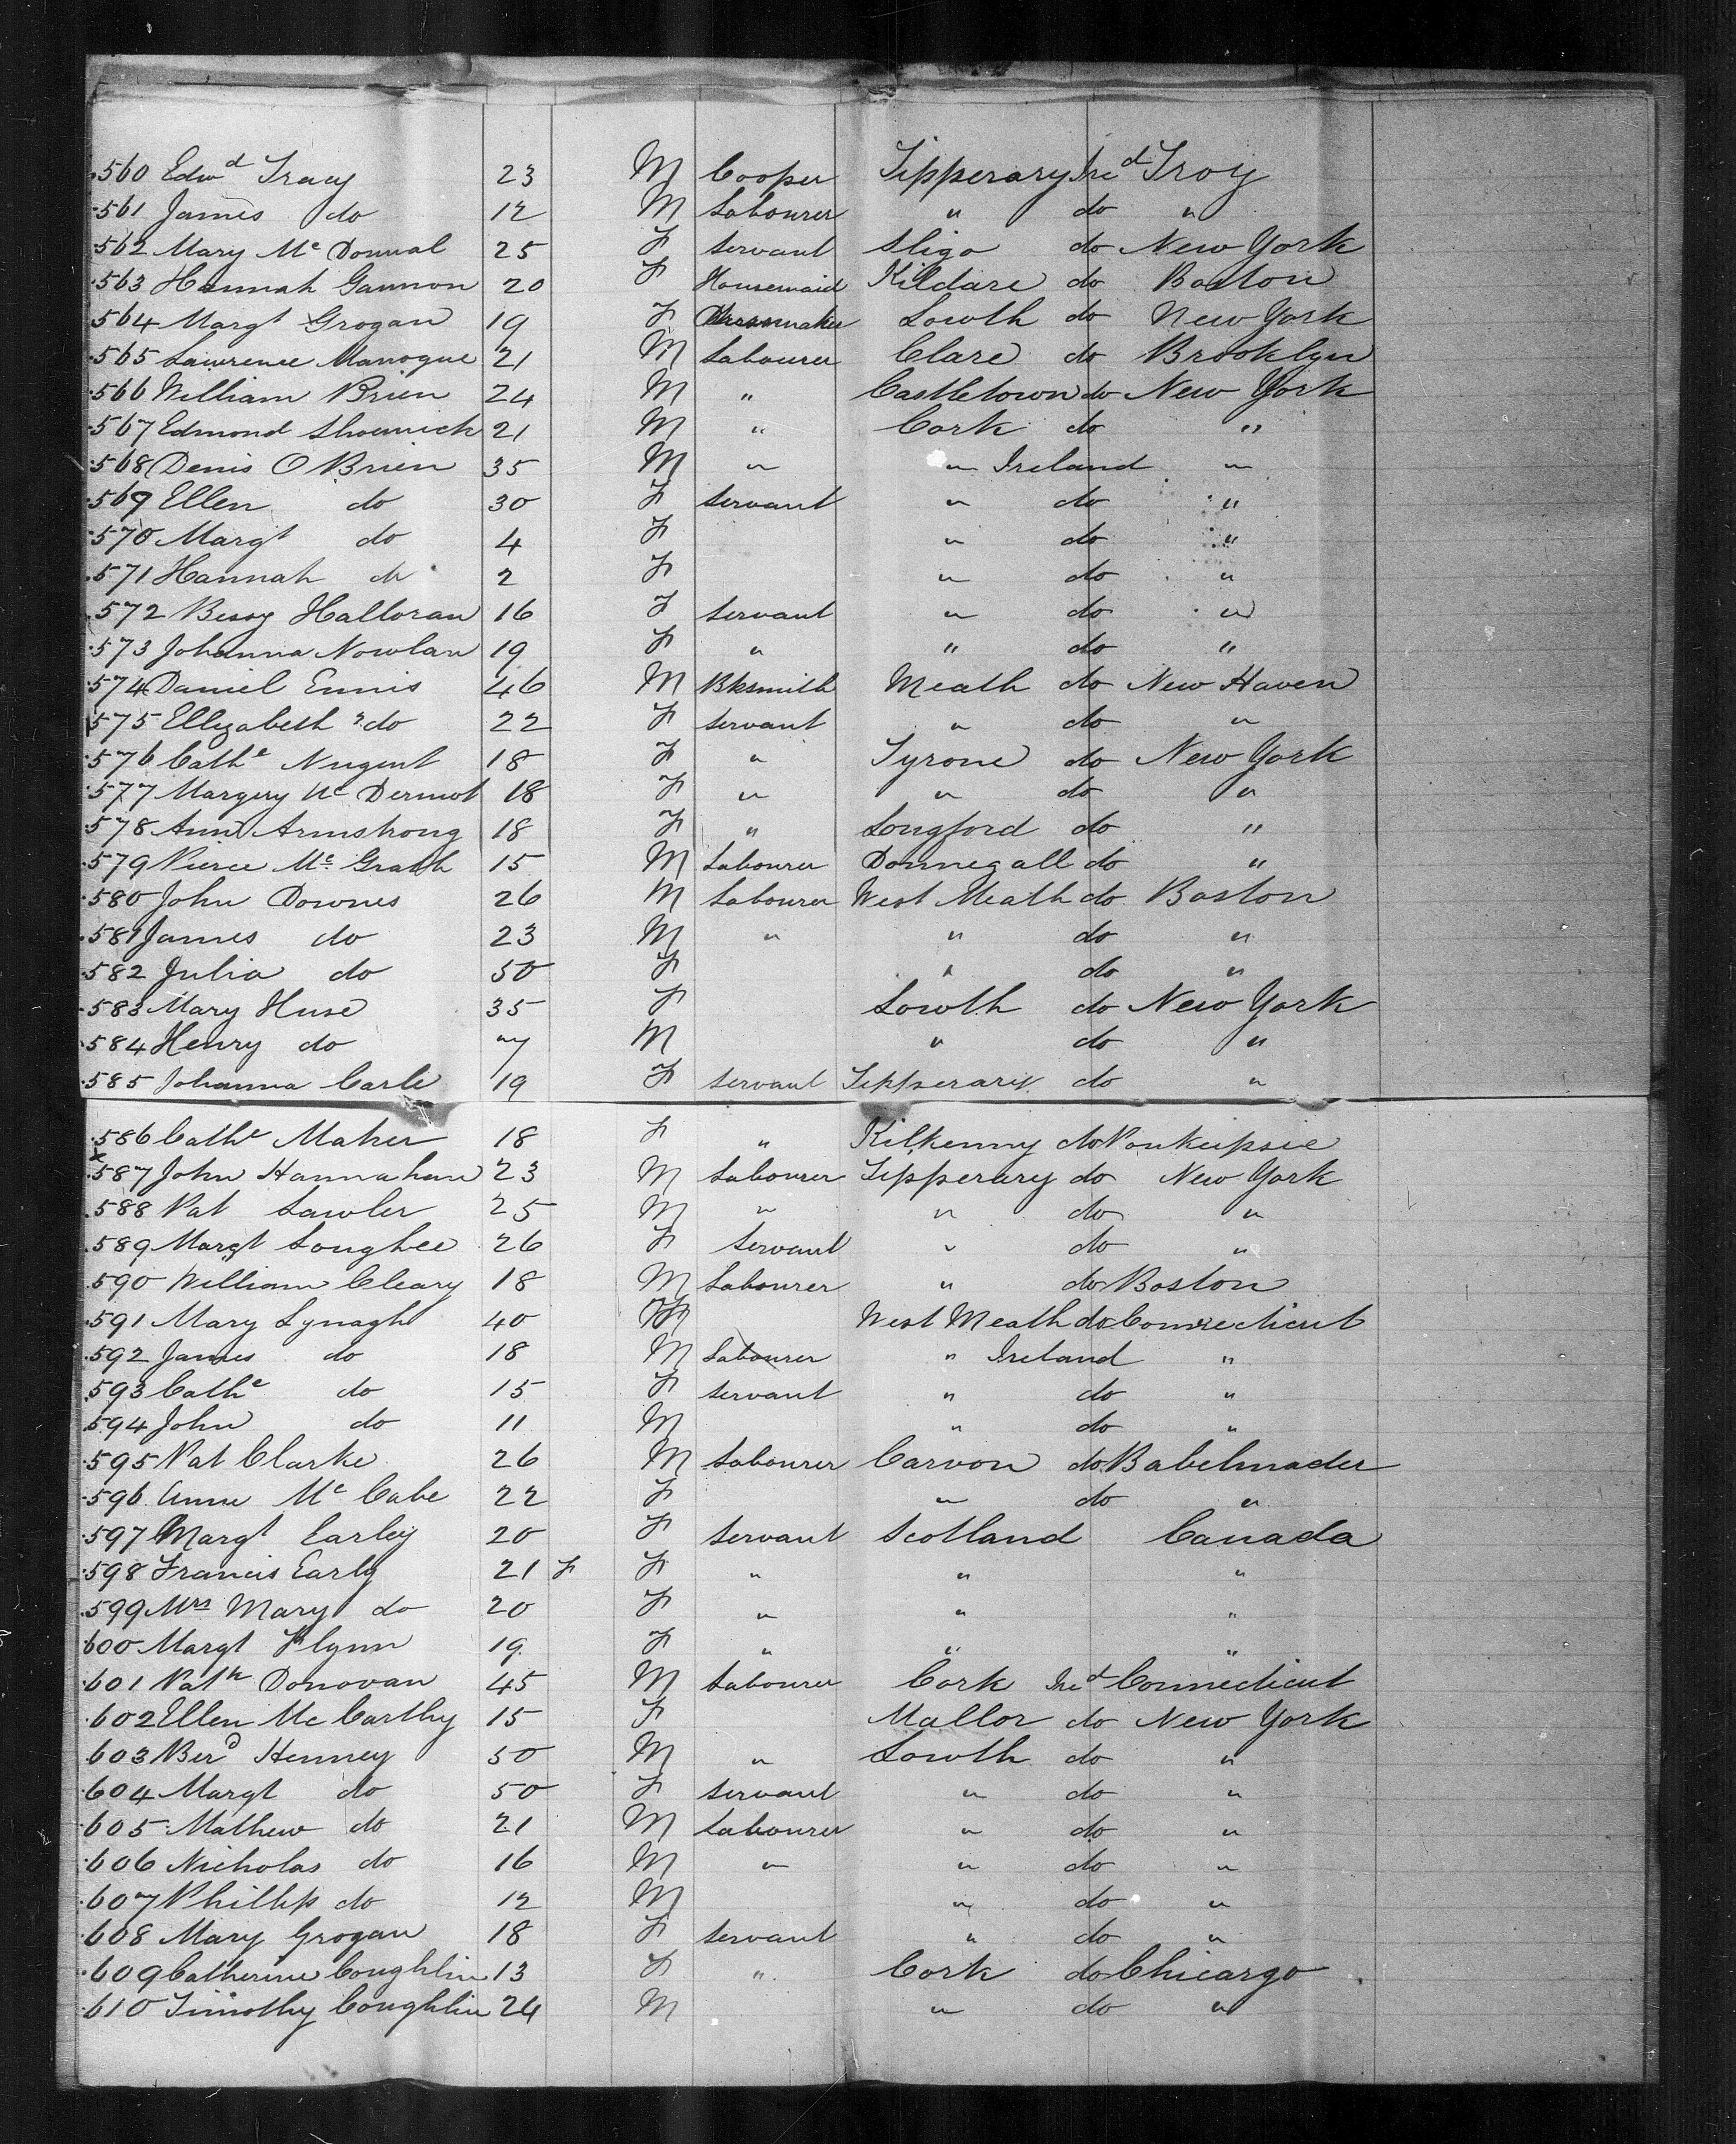 560 Edwd Tracy 23 M Cooper Tipperary Ired Troy
561 James do 12 M Labourer " do "
562 Mary Mc Donnal 25 F Servant Sligo do New York
563 Hannah Gannon 20 F Housemaid Kildare do Boston
564 Margt Grogan 19 F Dressmaker Lowth do New York
565 Lawrence Manogue 21 M Labourer Clare do Brooklyn
566 William Brien 24 M " Castletown do New York
567 Edmond 21 M " Cork do "
568 Denis O Brien 35 M " " Ireland "
569 Ellen do 30 F Servant " do "
570 Margt do 4 F " do "
571 Hannah do 2 F " do "
572 Bessy Halloran 16 F Servant " do "
573 Johanna Nowlan 19 F " " do "
574 Daniel Ennis 46 M Bksmith Meath do New Haven
575 Ellizabeth do 22 F Servant " do "
576 Cathe Nugent 18 F " Tyrone do New York
577 Margery Mc Dermot 18 F " " do "
578 Ann Armstrong 18 F " Longford do "
579 Pierce Mc Grath 15 M Labourer Donnegall do "
580 John Downes 26 M Labourer West Meath do Boston
581 James do 23 M " " do "
582 Julia do 50 F " do "
583 Mary Huse 35 F Lowth do New York
584 Henry do 7 M " do "
585 Johanna Carle 19 F Servant Tipperary do "
586 Cathe Maher 18 F " Kilkenny do Poukeipsie
x
587 John Hannahan 23 M Labourer Tipperary do New York
588 Pat Lawler 25 M " " do "
589 Margt Loughee 26 F Servant " do "
590 William Cleary 18 M Labourer " do Boston
591 Mary Lynagh 40 F West Meath do Connecticut
592 James do 18 M Labourer " Ireland "
593 Cathe do 15 F Servant " do "
594 John do 11 M " do "
595 Pat Clarke 26 M Labourer Carvon do Babelmader
596 Anne Mc Cabe 22 F " do "
597 Margt Earley 20 F Servant Scotland Canada
598 Francis Early 21 F F " " "
599 Mrs Mary do 20 F " " "
600 Margt Flynn 19 F " " "
601 Patk Donovan 45 M Labourer Cork Ired Connecticut
602 Ellen Mc Carthy 15 F Mallor do New York
603 Berd Henney 50 M " Lowth do "
604 Margt do 50 F Servant " do "
605 Mathew do 21 M Labourer " do "
606 Nicholas do 16 M " " do "
607 Phillip do 12 M " do "
608 Mary Grogan 18 F Servant " do "
609 Catherine Coughlin 13 F " Cork do Chicargo
610 Timothy Coughlin 24 M " do "